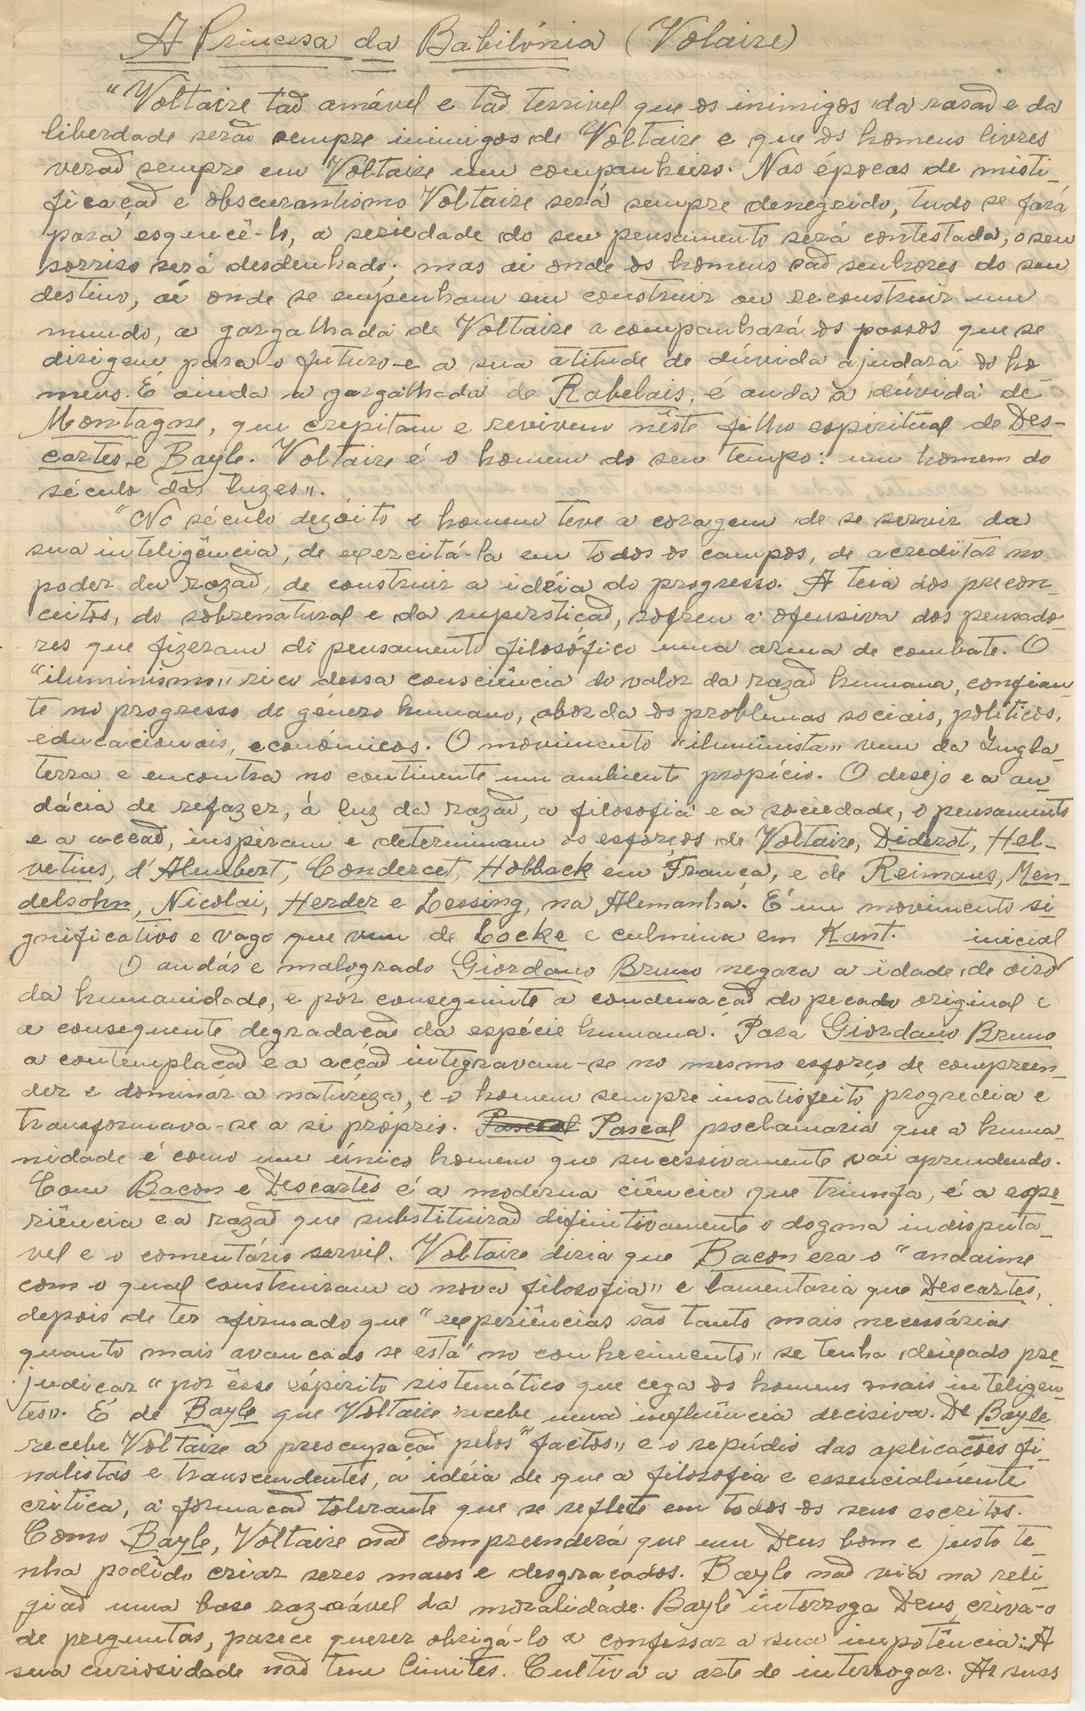 A Princesa da Babilónia (Volaire)
"Voltaire tão amável e tão terrivel que os inimigos da rasão e da
liberdade serão sempre inimigos de Voltaire e que os homens livres
verão sempre em Voltaire um companheiro. Nas épocas de misti-
ficação e obscurantismo Voltaire será sempre denegrido, tudo se fará
para esquecê-lo, a seriedade do seu pensamento será contestada, o seu
sorriso será desdenhado; mas aí onde os homens são senhores do seu
destino, aí onde se empenham em construir ou reconstruir um
mundo, a gargalhada de Voltaire acompanhará os passos que se
dirigem para o futuro e a sua atitude de dúvida ajudará os ho-
mens. É ainda a gargalhada de Rabelais, é ainda a dúvida de
Montagne, que crepitam e revivem nêste filho espiritual de Des-
cartes e Bayle. Voltaire é o homem do seu tempo: um homem do
século das luzes".
"No século dezóito o homem teve a coragem de se servir da
sua inteligência, de exercitá-la em todos os campos, de acreditar no
poder da razão, de construir a idéia do progresso. A teia dos precon-
ceitos, do sobrenatural e da superstição, sofreu a ofensiva dos pensado-
res que fizeram do pensamento filosófico uma arma de combate. O
"iluminismo" rico dessa consciência do valor da razão humana, confian-
te no progresso do género humano, aborda os problemas sociais, políticos,
educacionais, económicos. O movimento "iluminista" vem da Ingla-
terra e encontra no continente um ambiente propício. O desejo e a au-
dácia de refazer, à luz da razão, a filosofia e a sociedade, o pensamento
e a acção, inspiram e determinam os esforços de Voltaire, Diderot, Hel-
vetius, d'Alembert, Condercet, Holback em França, e de Reimaus, Men-
delsohn, Nicolai, Herder e Lessing, na Alemanha. É um movimento si-
gnificativo e vago que vem de Locke e culmina em Kant. inicial
O audáz e malogrado Giordano Bruno negara a idade de oiro
da humanidade, e por conseguinte a condenação do pecado original e
a consequente degradação da espécie humana. Para Giordano Bruno
a contemplação e a acção integravam-se no mesmo esforço de compreen-
der e dominar a natureza, e o homem sempre insatisfeito progredia e
transformava-se a si próprio. Pascal proclamaria que a huma-
nidade é como um único homem que sucessivamente vai aprendendo.
Com Bacon e Descartes é a moderna ciência que triunfa, é a expe-
riência e a razão que substituirão difinitivamente o dogma indisputá-
vel e o comentário servil. Voltaire diria que Bacon era o "andaime
com o qual construiram a nova filosofia" e lamentaria que Descartes,
depois de ter afirmado que "experiências são tanto mais necessárias
quanto mais avançado se está no conhecimento" se tenha deixado pre-
judicar "por êsse espírito sistemático que cega os homens mais inteligen-
tes". É de Bayle que Voltaire recebe uma influência decisiva. De Bayle
recebe Voltaire a preocupação pelos "factos" e o repúdio das aplicações fi-
nalistas e transcendentes, a idéia de que a filosofia é essencialmente
critica, a formação tolerante que se reflete em todos os seus escritos.
Como Bayle, Voltaire não compreenderá que um Deus bom e justo te-
nha podido criar seres maus e desgraçados. Bayle não via na reli-
gião uma base razoável da moralidade. Bayle interroga Deus, criva-o
de preguntas, parece querer obrigá-lo a confessar a sua impotência. A
sua curiosidade não tem limites. Cultiva a arte de interrogar. As suas